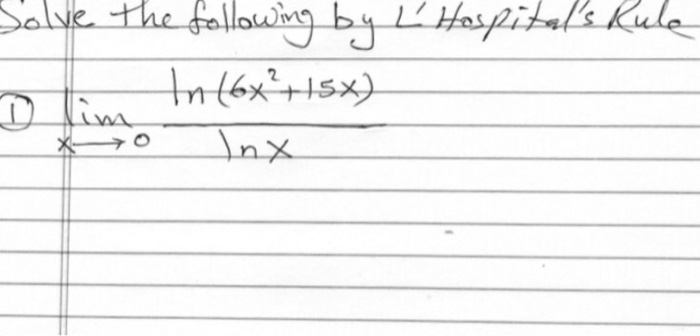 Solve the following by L' Hospital's Rule
① lim x→0 ln(6x²+15x) / lnx